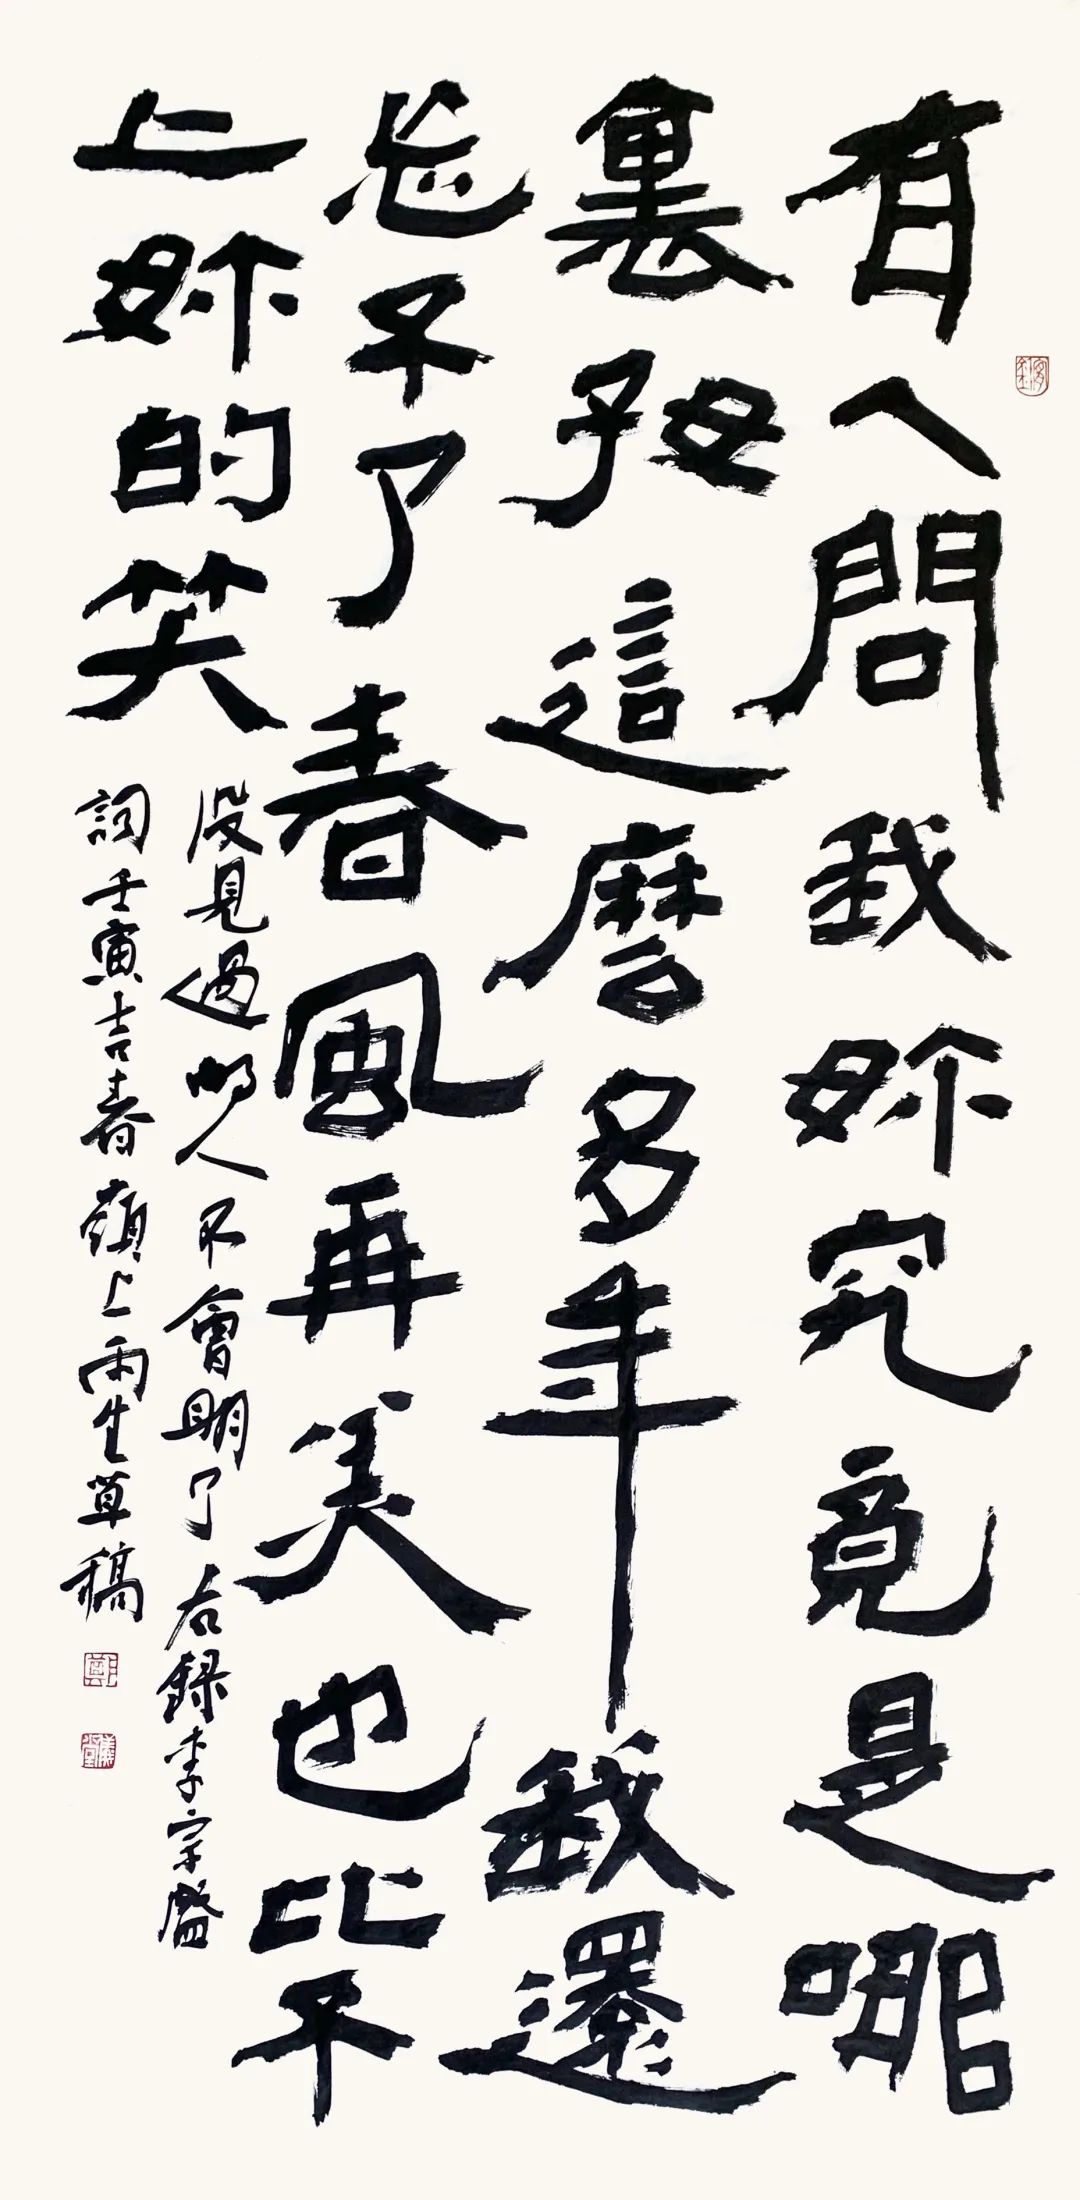 有人問我妳究竟是哪
裏好這麼多年我還
忘不了春風再美也比不
上妳的笑
没見過的人不會明了右録李宗盛
詞壬寅吉春上雨生草稿